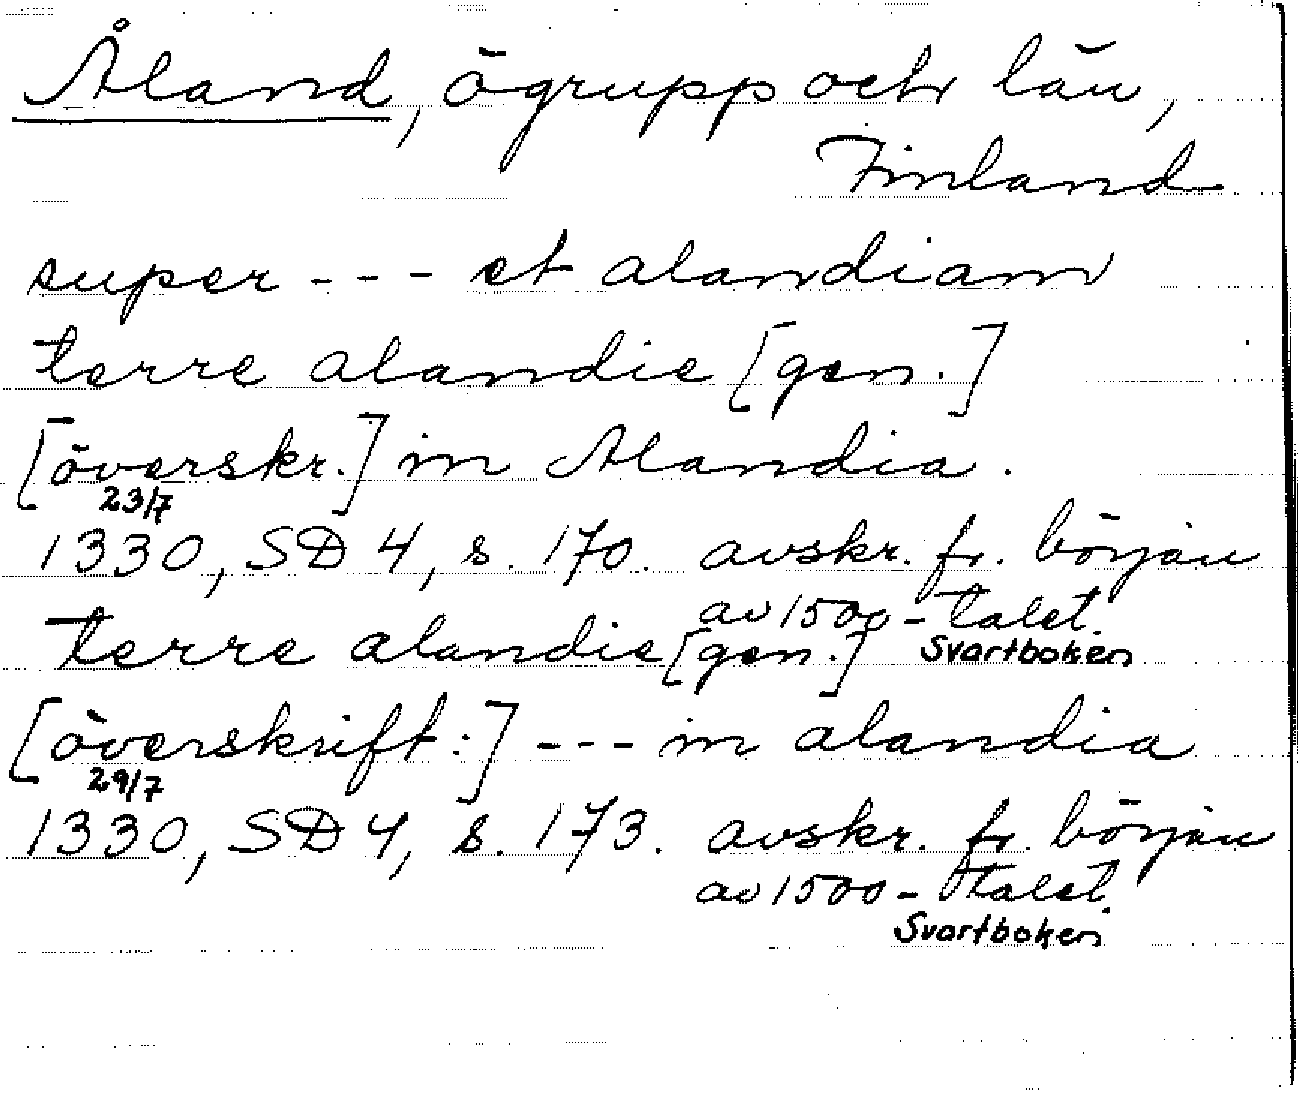 Åland, ögrupp och län,
Finland
super --- et alandiam
terre alandie [gen.]
[överskr.] in Alandia.
23/7
1330, SD 4, s. 170. avskr. fr. början
av 1500-talet.
Svartboken
terre alandie [gen.]
[överskrift:] --- in alandia
29/7
1330, SD 4, s. 173. avskr. fr. början
av 1500-talet.
Svartboken